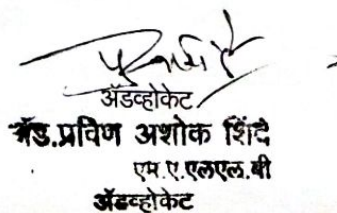 ॲडव्होकेट
ॲड.प्रविण अशोक शिंदे
एम.ए.एलएल.बी
ॲडव्होकेट